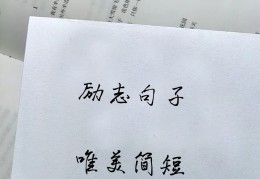 励志句子
唯美简短